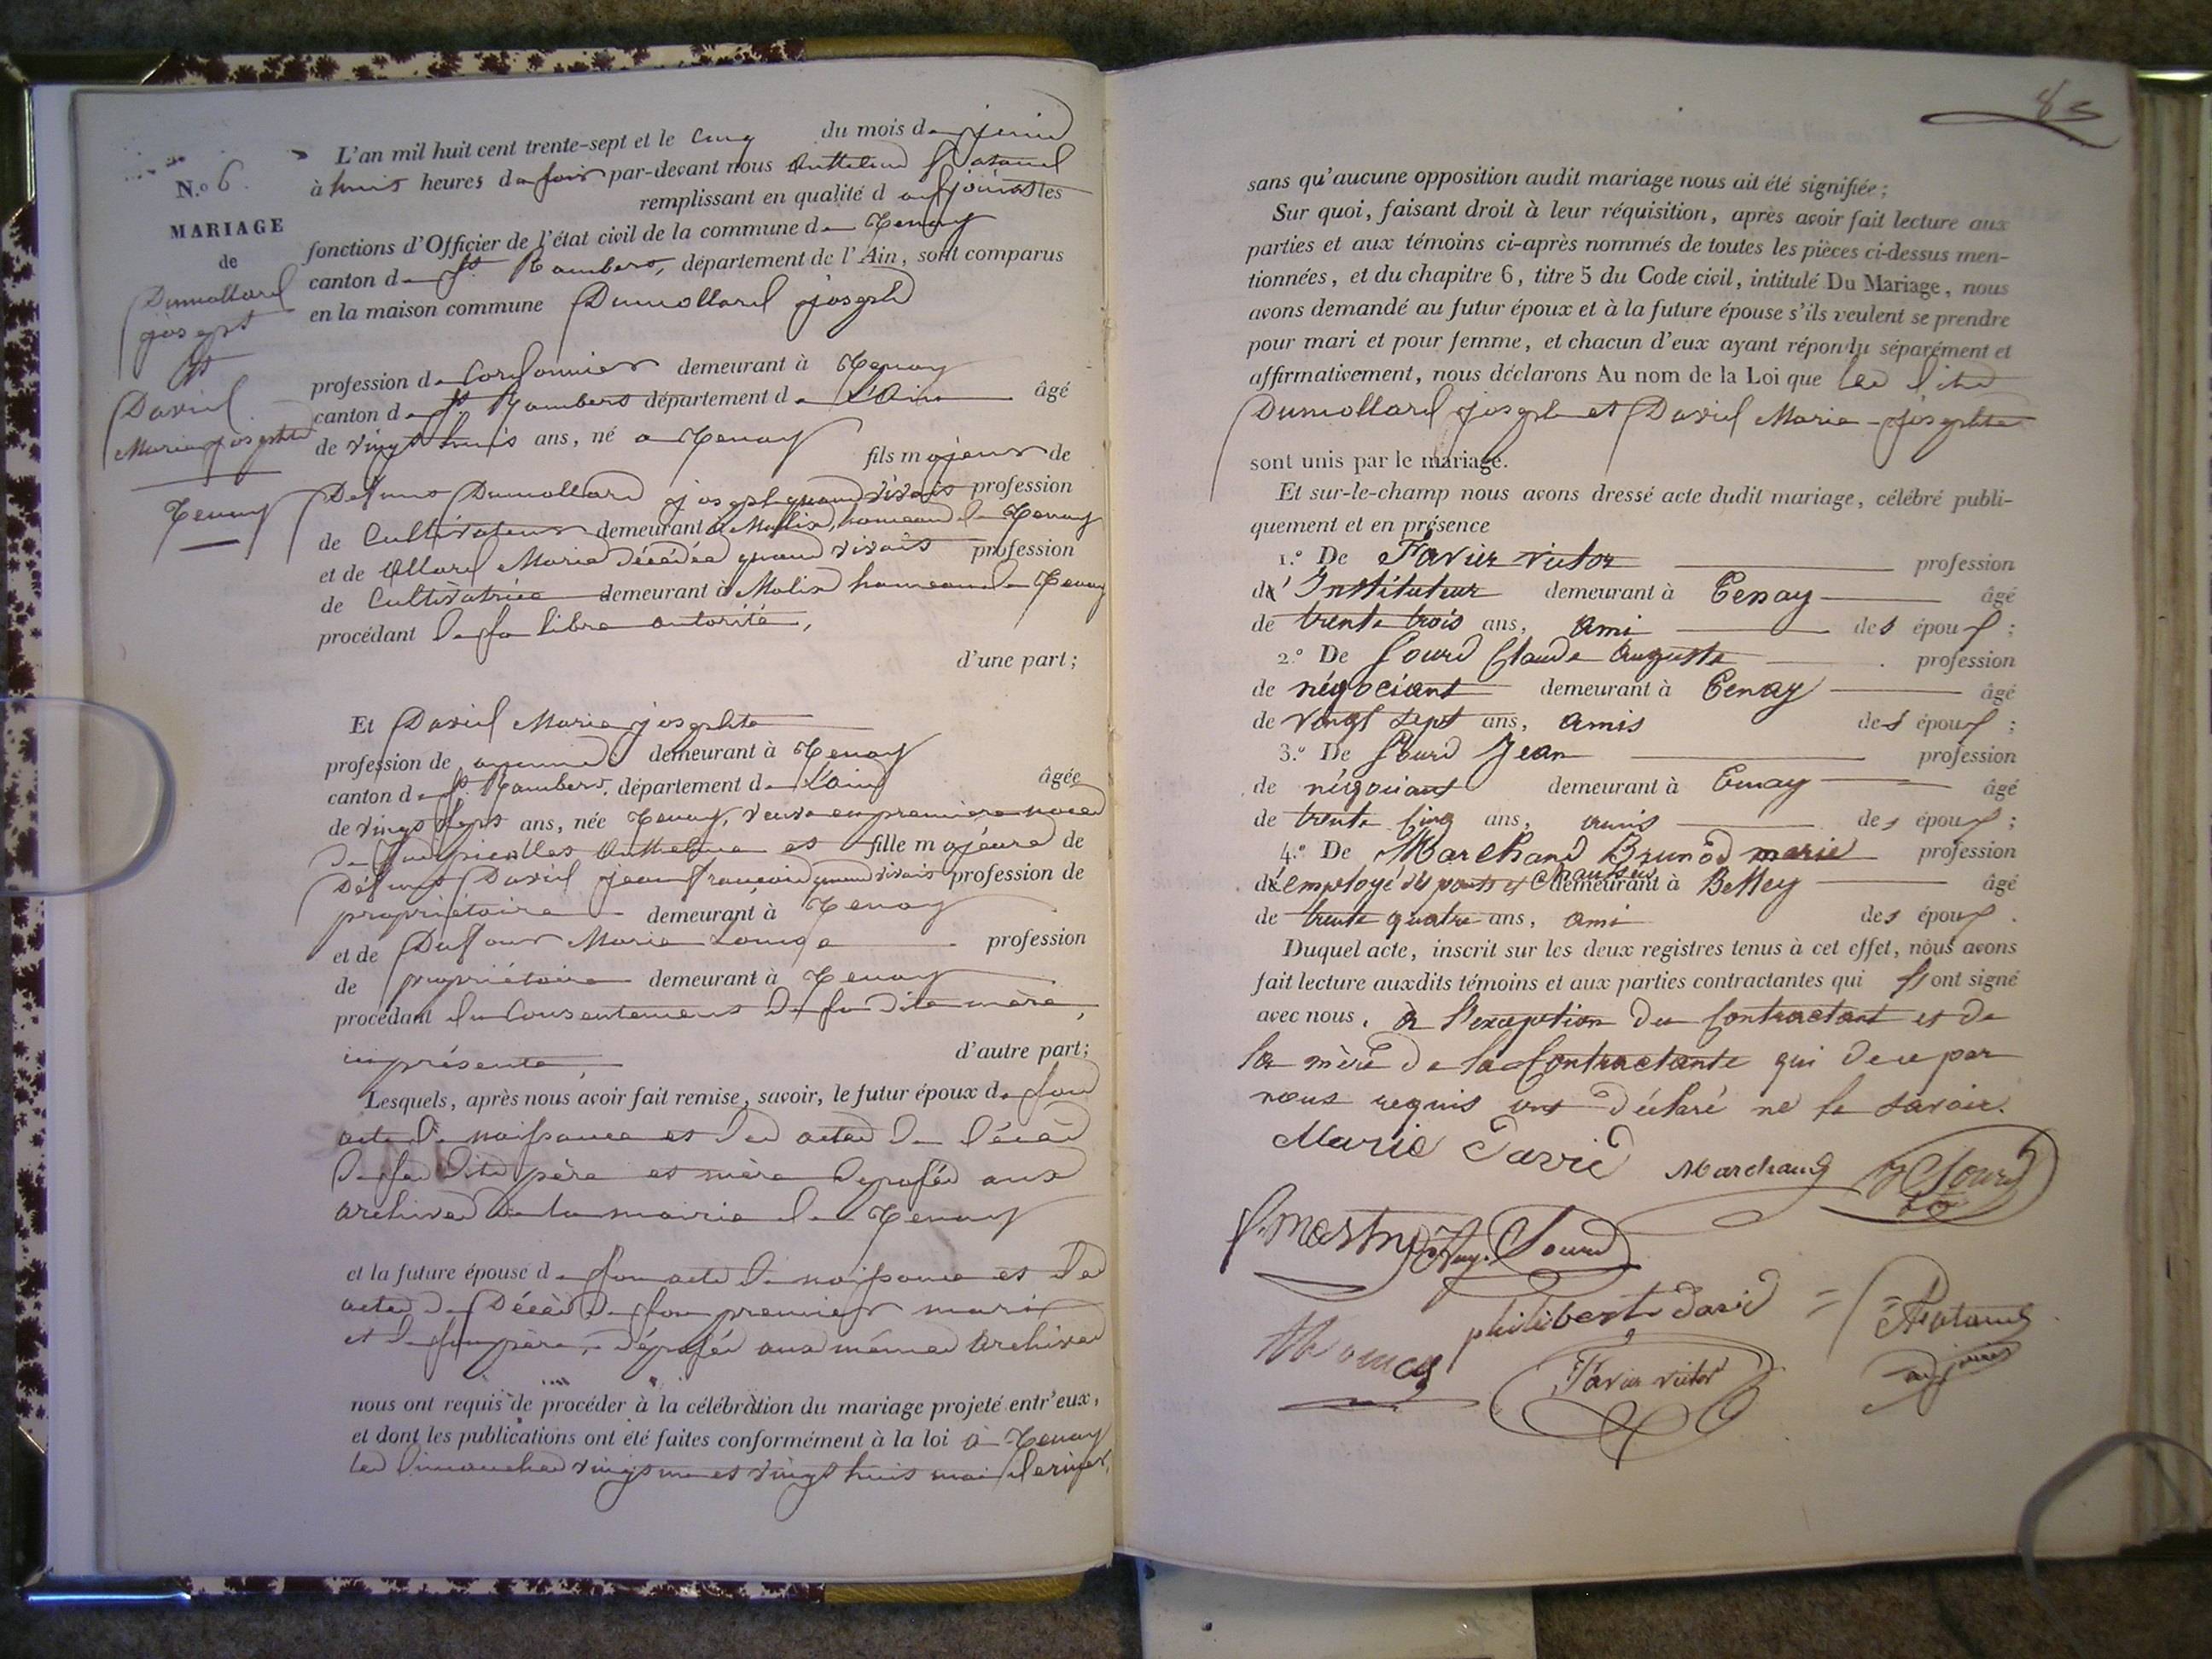 N.o 6.
MARIAGE
de
Dumollard
joseph
et
David
Marie josephte
Tenay
L'an mil huit cent trente-sept et le cinq du mois de juin
à huit heures du soir par-devant nous Anthelme
remplissant en qualité d'adjoint les
fonctions d'Officier de l'état civil de la commune de Tenay
canton de St. Rambert, département de l'Ain, sont comparus
en la maison commune Dumollard joseph
profession de Cordonnier demeurant à Tenay
canton de St. Rambert département de L'Ain âgé
de vingt huit ans, né a Tenay
fils majeur de
Defunt Dumollard joseph quand vivait profession
de Cultivateur demeurant à Malix, hameau de Tenay
et de Allard Marie décédée quand vivait profession
de Cultivatrice demeurant à Malix hameau de Tenay
procédant de sa libre autorité,
d'une part;
Et David Marie josephte
profession de demeurant à Tenay
canton de St. Rambert, département de L'ain âgée
de vingt sept ans, née Tenay, veuve en première noces
de Anthelme et fille majeure de
Défunt David jean françois quand vivait profession de
propriétaire demeurant à Tenay
et de Dufour Marie Louise profession
de propriétaire demeurant à Tenay
procédant du Consentement de sa dite mère,
ici présente, d'autre part;
Lesquels, après nous avoir fait remise, savoir, le futur époux de son
acte de naissance et des actes de décès
de ses dits père et mère déposés aux
archives de la mairie de Tenay
et la future épouse de son acte de naissance et des
actes de Décès de son premier mari
et de son père, déposés aux mêmes archives
nous ont requis de procéder à la célébration du mariage projeté entr'eux,
et dont les publications ont été faites conformément à la loi à Tenay
les dimanches vingt un et vingt huit mai dernier,
8
sans qu'aucune opposition audit mariage nous ait été signifiée;
Sur quoi, faisant droit à leur réquisition, après avoir fait lecture aux
parties et aux témoins ci-après nommés de toutes les pièces ci-dessus men-
tionnées, et du chapitre 6, titre 5 du Code civil, intitulé Du Mariage, nous
avons demandé au futur époux et à la future épouse s'ils veulent se prendre
pour mari et pour femme, et chacun d'eux ayant répondu séparément et
affirmativement, nous déclarons Au nom de la Loi que les dits
Dumollard joseph et David Marie-josephte
sont unis par le mariage.
Et sur-le-champ nous avons dressé acte dudit mariage, célébré publi-
quement et en présence
1.o De Favier victor profession
d' Instituteur demeurant à Tenay âgé
de trente trois ans, ami des époux;
2.o De Sourd Claude Auguste profession
de négociant demeurant à Tenay âgé
de vingt sept ans, amis des époux;
3.o De Sourd Jean profession
de négociant demeurant à Tenay âgé
de trente cinq ans, amis des époux;
4.o De Marchand Brunod marie profession
d'employé des ponts et chaussées demeurant à Belley âgé
de trente quatre ans, ami des époux.
Duquel acte, inscrit sur les deux registres tenus à cet effet, nous avons
fait lecture auxdits témoins et aux parties contractantes qui ont signé
avec nous, à l'exception du Contractant et de
la mère de la Contractante qui de ce par
nous requis ont déclaré ne le savoir.
Marie David Marchand J Sourd
Aug. Sourd
philibert david
Favier victor
adjoint